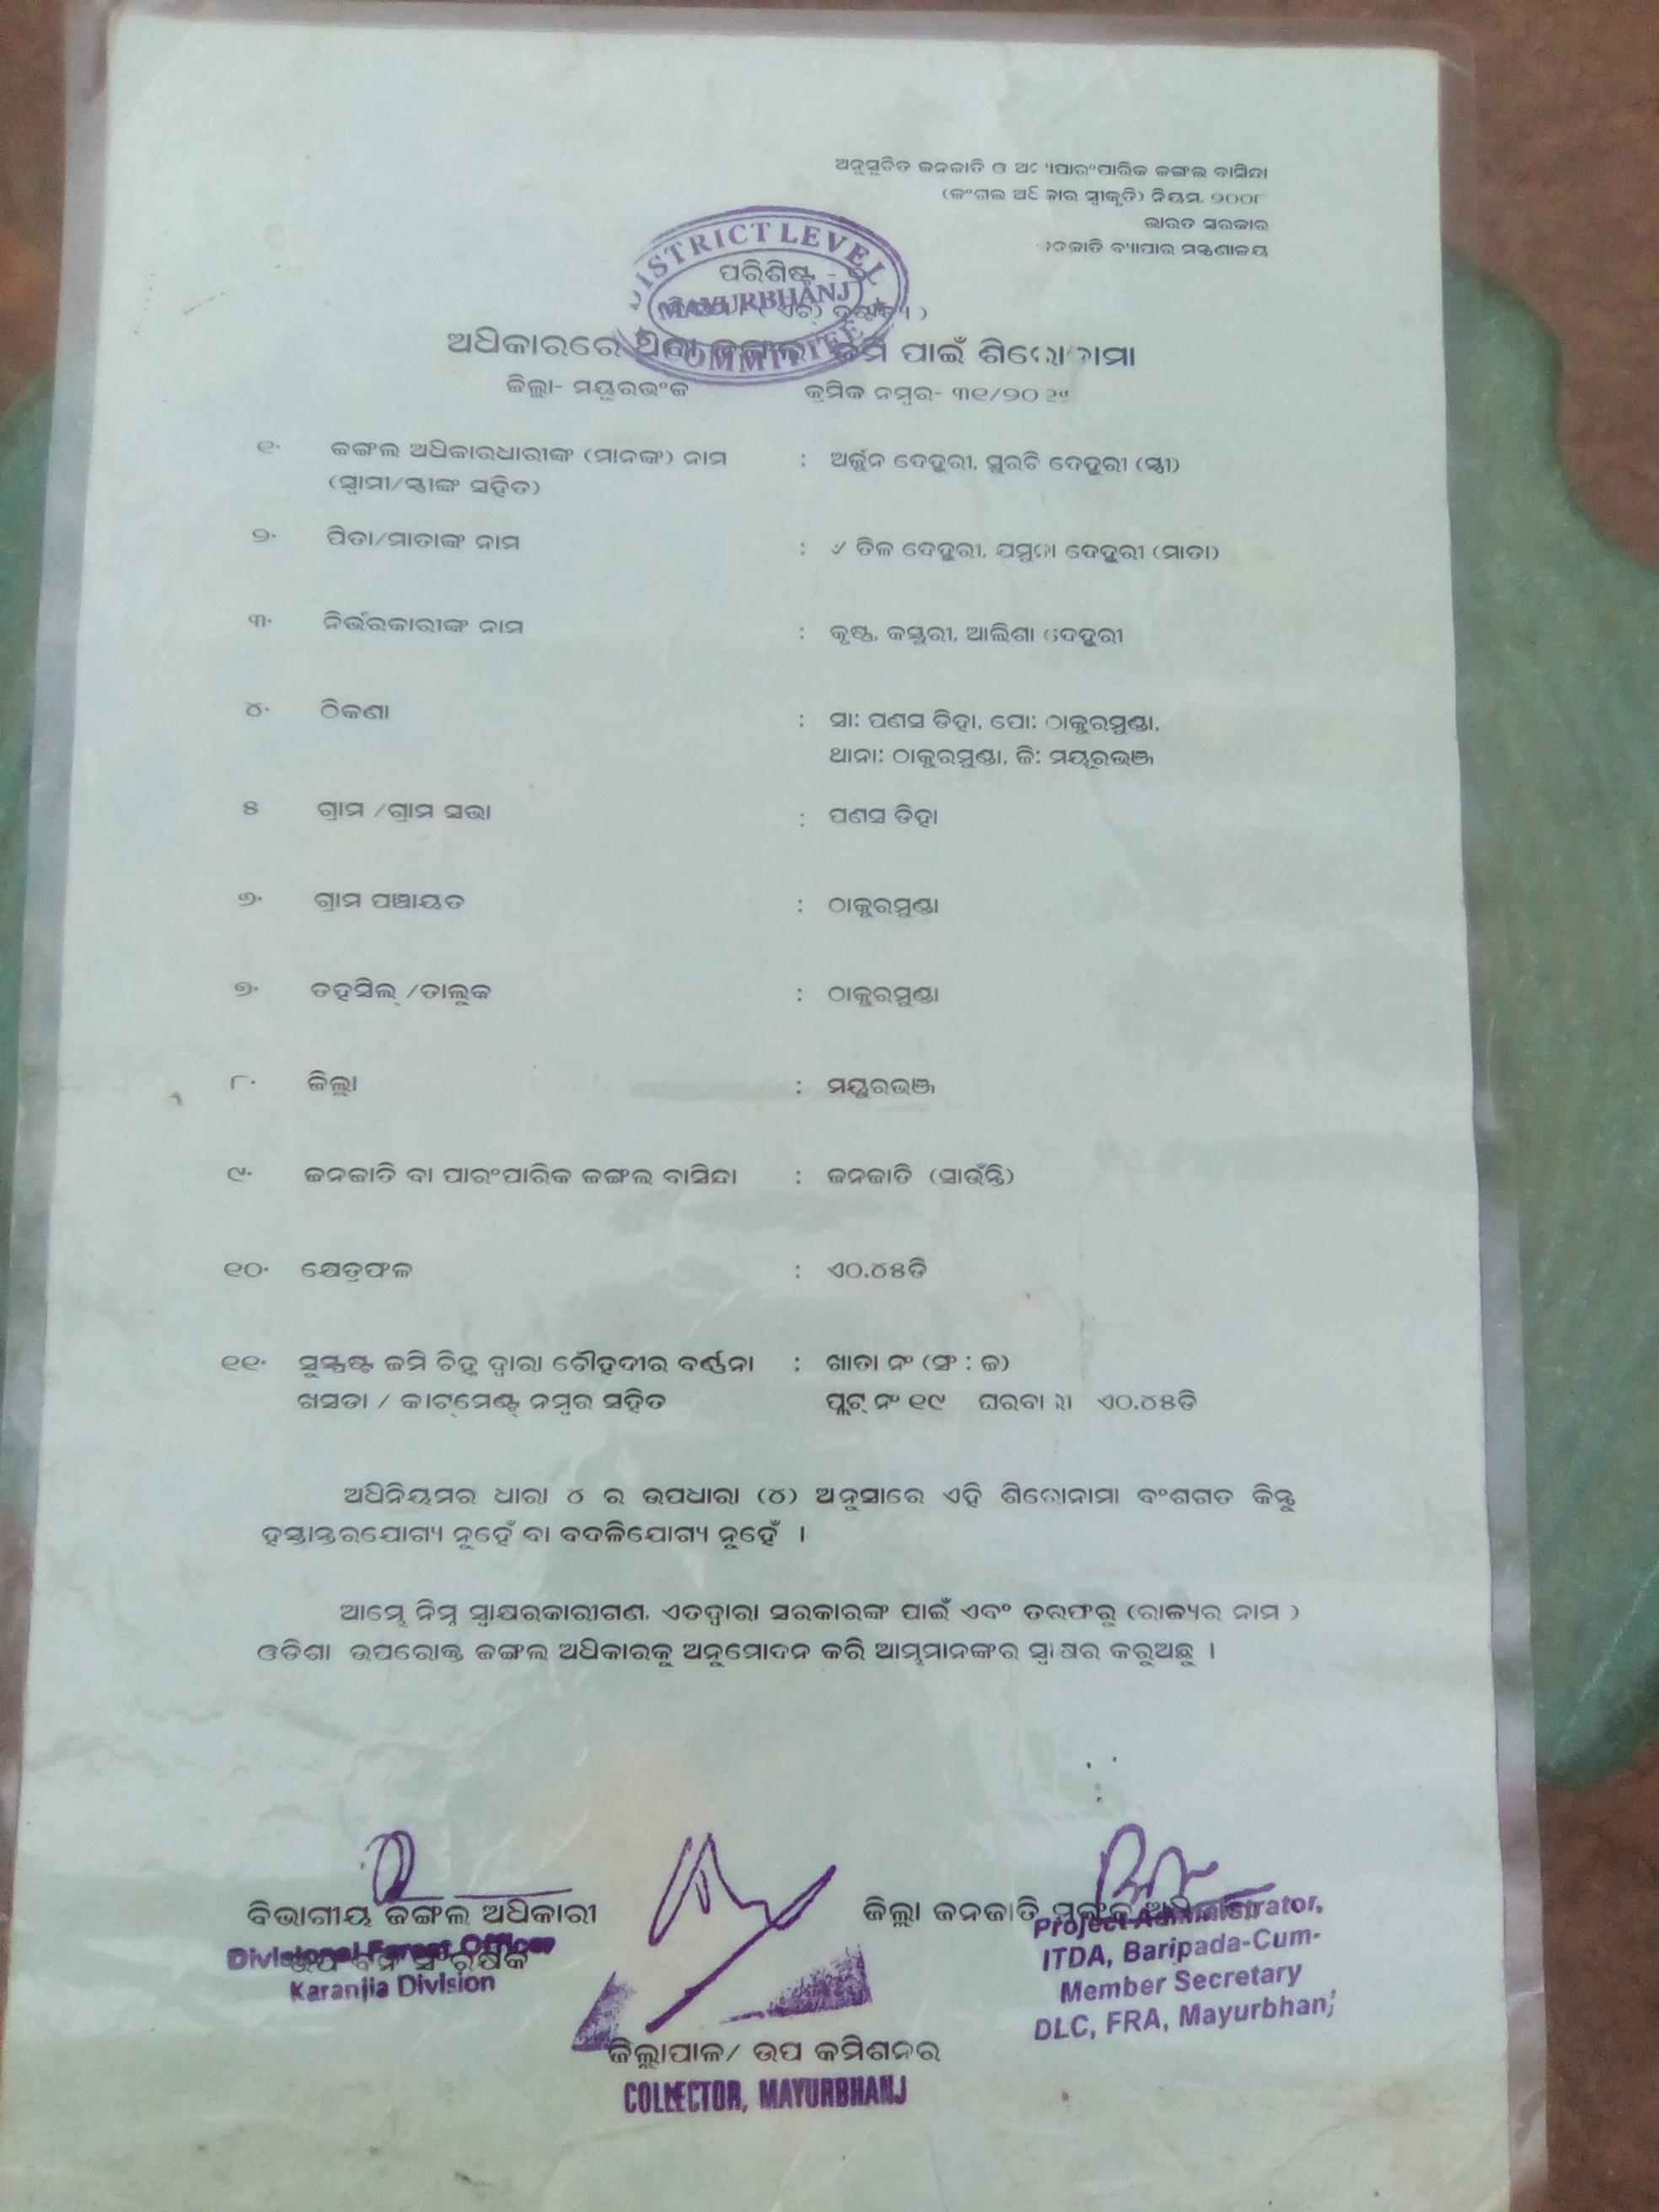 ଅନୁସୂଚିତ ଜନଜାତି ଓ ପାରଂପାରିକ ଜଙ୍ଗଲ ବାସିନ୍ଦା
(ଜଂଗଲ ଅଧିକାର ସ୍ୱୀକୃତି) ନିୟମ, ୨୦୦୮
ଭାରତ ସରକାର
ଜନଜାତି ବ୍ୟାପାର ମନ୍ତ୍ରଣାଳୟ
DISTRICT LEVEL
ପରିଶିଷ୍ଟ -
MAYURBHANJ
COMMITTEE
ଅଧିକାରରେ ଥିବା ଜଙ୍ଗଲ ଜମି ପାଇଁ ଶିରୋନାମା
ଜିଲ୍ଲା- ମୟୂରଭଂଜ କ୍ରମିକ ନମ୍ବର- ୩୧/୨୦
୧. ଜଙ୍ଗଲ ଅଧିକାରଧାରୀଙ୍କ (ମାନଙ୍କ) ନାମ : ଅର୍ଜୁନ ଦେହୁରୀ, ସୁରଚି ଦେହୁରୀ (ସ୍ତ୍ରୀ)
(ସ୍ୱାମୀ/ସ୍ତ୍ରୀଙ୍କ ସହିତ)
୨. ପିତା/ମାତାଙ୍କ ନାମ : ତିଳ ଦେହୁରୀ, ଯମୁନା ଦେହୁରୀ (ମାତା)
୩. ନିର୍ଭରକାରୀଙ୍କ ନାମ : କୃଷ୍ଣ, କସ୍ତୁରୀ, ଆଲିଶା ଦେହୁରୀ
୪. ଠିକଣା : ସା: ପଣସ ଡିହା, ପୋ: ଠାକୁରମୁଣ୍ଡା,
ଥାନା: ଠାକୁରମୁଣ୍ଡା, ଜି: ମୟୂରଭଞ୍ଜ
୫ ଗ୍ରାମ /ଗ୍ରାମ ସଭା : ପଣସ ଡିହା
୬. ଗ୍ରାମ ପଞ୍ଚାୟତ : ଠାକୁରମୁଣ୍ଡା
୭. ତହସିଲ୍ /ତାଲୁକ : ଠାକୁରମୁଣ୍ଡା
୮. ଜିଲ୍ଲା : ମୟୁରଭଞ୍ଜ
୯. ଜନଜାତି ବା ପାରଂପାରିକ ଜଙ୍ଗଲ ବାସିନ୍ଦା : ଜନଜାତି (ସାଉଁନ୍ତି)
୧୦. କ୍ଷେତ୍ରଫଳ : ଏ୦.୪୫ଡି
୧୧. ସୁସ୍ପଷ୍ଟ ଜମି ଚିହ୍ନ ଦ୍ୱାରା ଚୌହଦୀର ବର୍ଣ୍ଣନା : ଖାତା ନଂ (ସଂ : ଜ)
ଖସଡା / କାଟ୍‌ମେଣ୍ଟ୍ ନମ୍ବର ସହିତ ପ୍ଲଟ୍ ନଂ ୧୯ ଘରବାରୀ ଏ୦.୪୫ଡି
ଅଧିନିୟମର ଧାରା ୪ ର ଉପଧାରା (୪) ଅନୁସାରେ ଏହି ଶିରୋନାମା ବଂଶଗତ କିନ୍ତୁ
ହସ୍ତାନ୍ତରଯୋଗ୍ୟ ନୁହେଁ ବା ବଦଳିଯୋଗ୍ୟ ନୁହେଁ ।
ଆମ୍ଭେ ନିମ୍ନ ସ୍ୱାକ୍ଷରକାରୀଗଣ, ଏତଦ୍ୱାରା ସରକାରଙ୍କ ପାଇଁ ଏବଂ ତରଫରୁ (ରାଜ୍ୟର ନାମ )
ଓଡିଶା ଉପରୋକ୍ତ ଜଙ୍ଗଲ ଅଧିକାରକୁ ଅନୁମୋଦନ କରି ଆମ୍ଭମାନଙ୍କର ସ୍ୱାକ୍ଷର କରୁଅଛୁ ।
ବିଭାଗୀୟ ଜଙ୍ଗଲ ଅଧିକାରୀ
Divisional Forest Officer
ଉପ ବନ ସଂରକ୍ଷକ
Karanjia Division
ଜିଲ୍ଲା ଜନଜାତି ମଙ୍ଗଳ
Project Administrator,
ITDA, Baripada-Cum-
Member Secretary
DLC, FRA, Mayurbhanj
ଜିଲ୍ଲାପାଳ/ ଉପ କମିଶନର
COLLECTOR, MAYURBHANJ